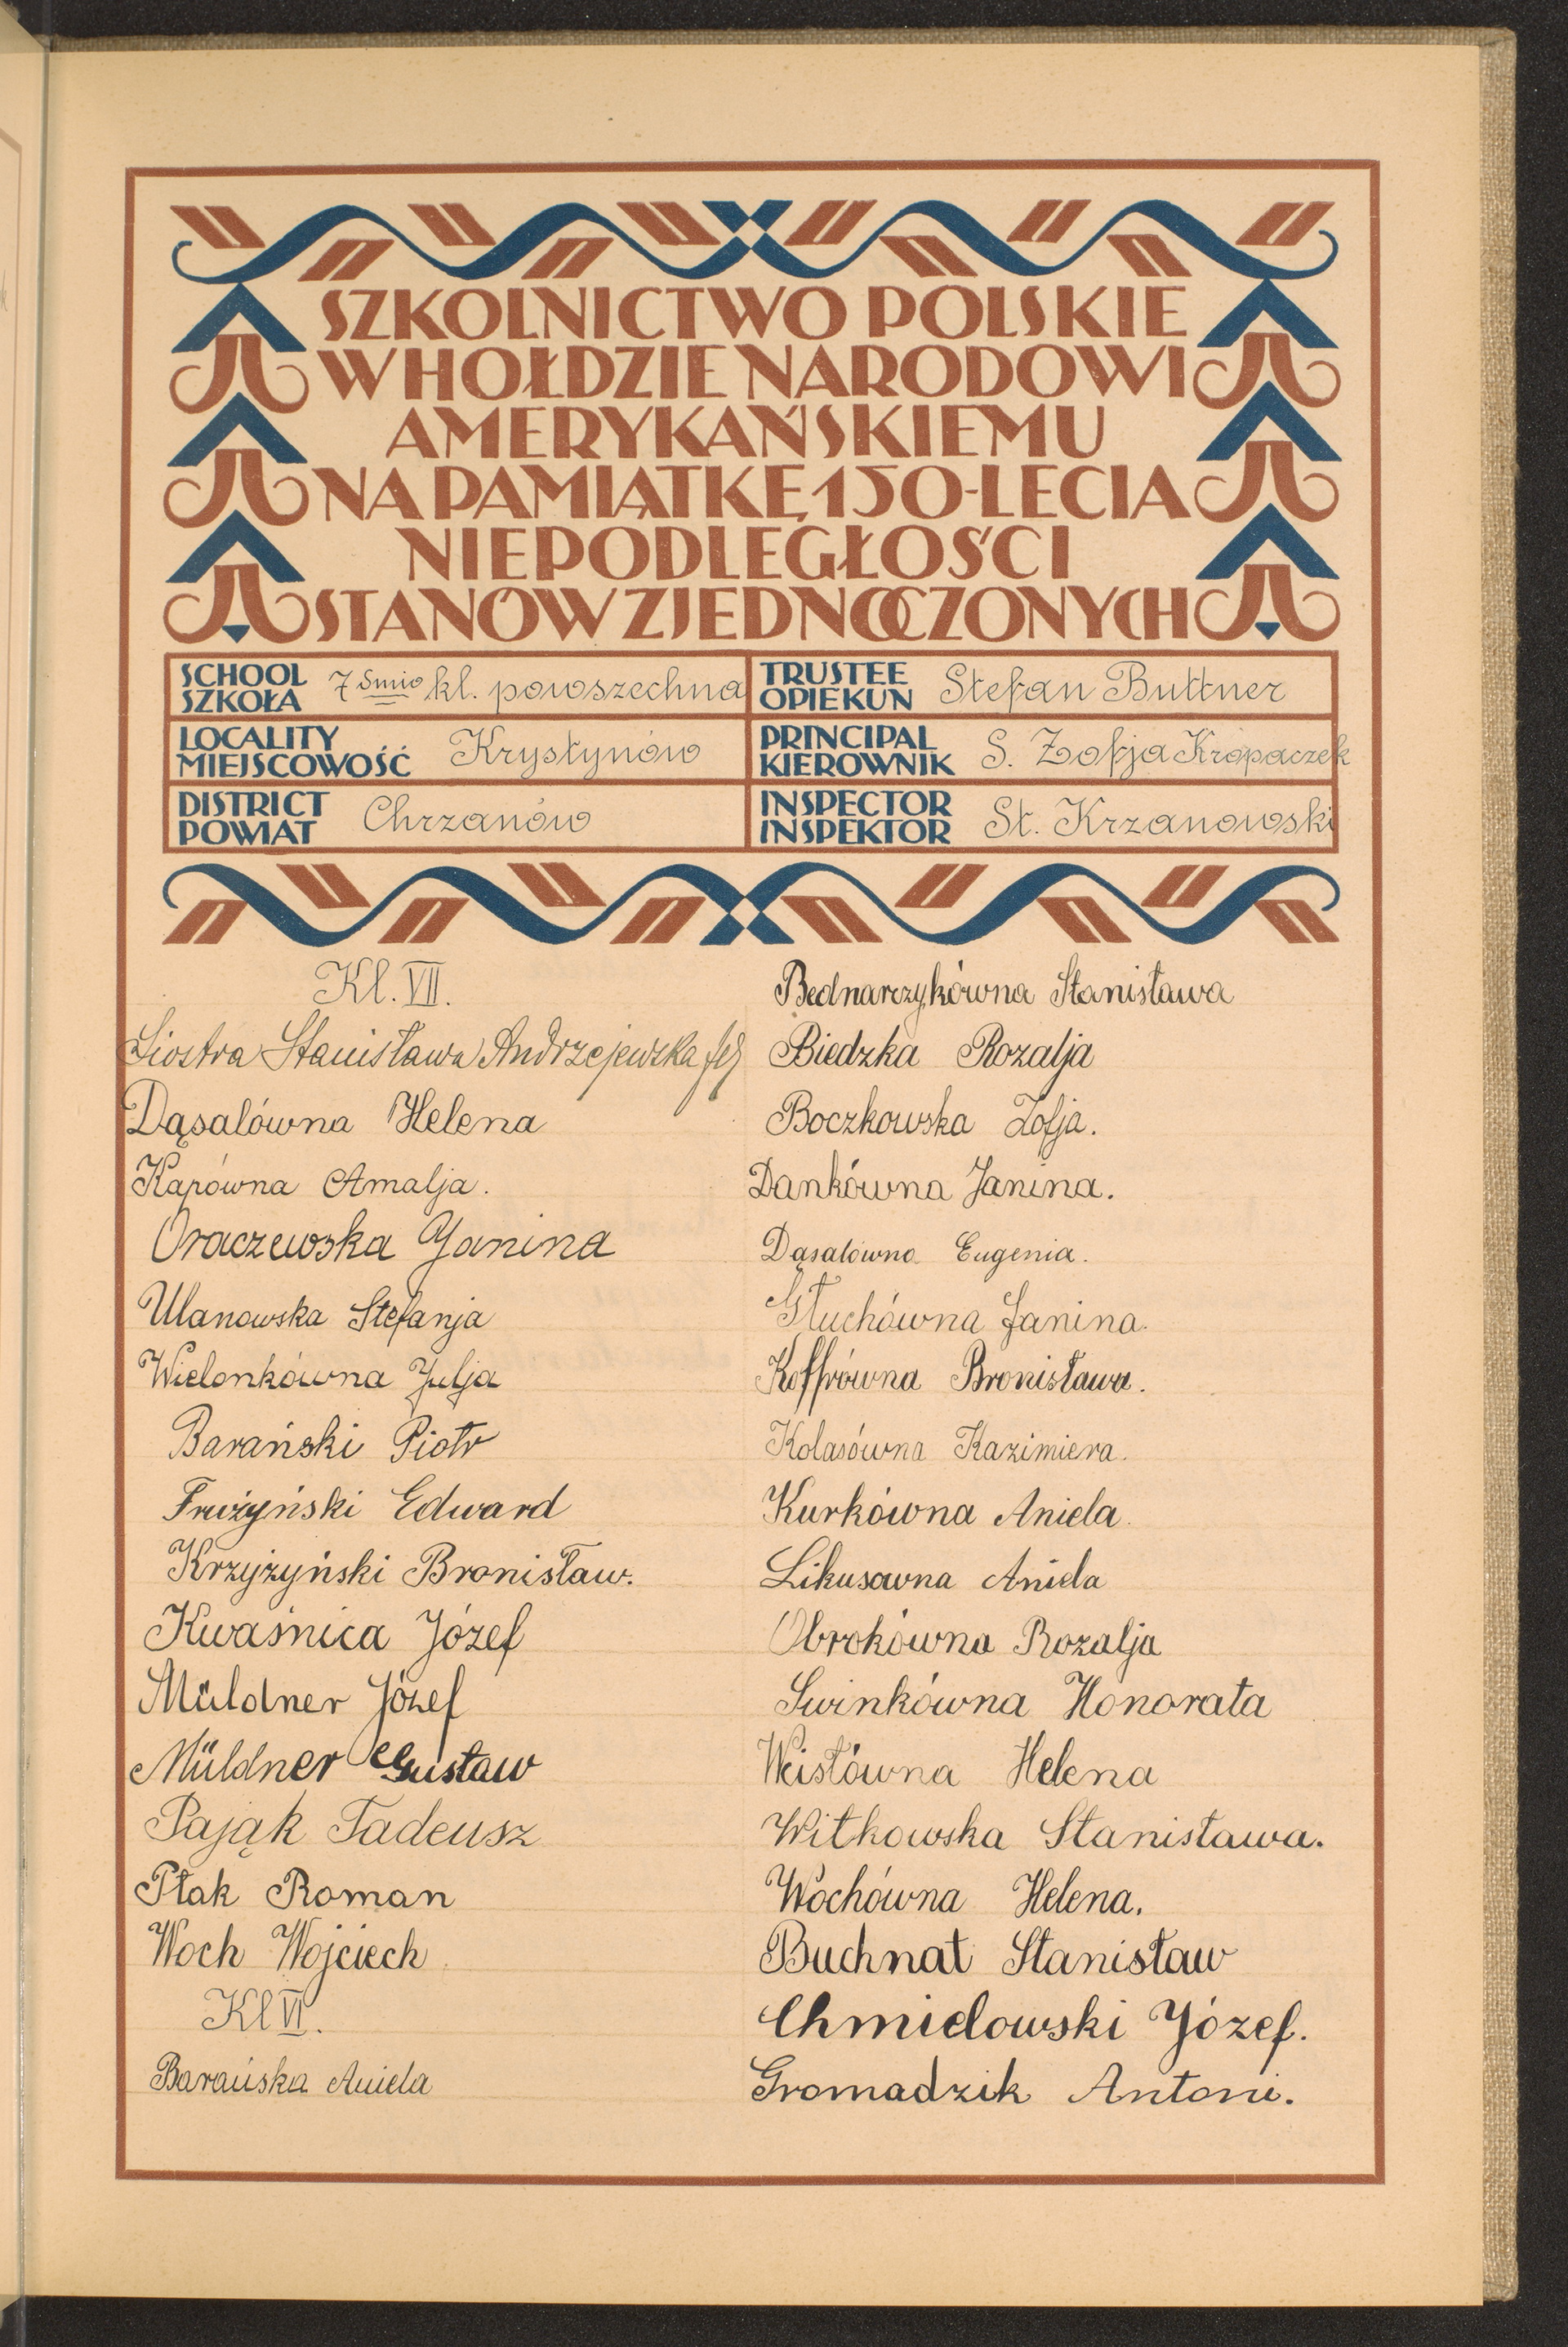 SZKOLNICTWO POLSKIE
W HOŁDZIE NARODOWI
AMERYKAŃSKIEMU
NA PAMIĄTKĘ 150-LECIA
NIEPODLEGŁOŚCI
STANÓW ZJEDNOCZONYCH
SCHOOL
SZKOŁA
7śmio kl. powszechna
TRUSTEE
OPIEKUN
Stefan Buttner
LOCALITY
MIEJSCOWOŚĆ
Krystynów
PRINCIPAL
KIEROWNIK
S. Zofja Kropaczek
DISTRICT
POWIAT
Chrzanów
INSPECTOR
INSPEKTOR
St. Krzanowski
Kl. VII.
Siostra Stanisława Andrzejewska
Dąsalówna Helena
Kapówna Amalja.
Oraczewska Janina
Ulanowska Stefanja
Wielonkówna Julja
Barański Piotr
Frużyński Edward
Krzyżyński Bronisław.
Kwaśnica Józef
Müldner Józef
Müldner Gustaw
Pająk Tadeusz
Ptak Roman
Woch Wojciech
Kl VI.
Barańska Aniela
Bednarzykówna Stanisława
Biedzka Rozalja
Boczkowska Zofja.
Dankówna Janina.
Dąsalówna Eugenia.
Głuchówna Janina.
Koffrówna Bronisława.
Kolasówna Kazimiera.
Kurkówna Aniela.
Likusowna Aniela
Obrokówna Rozalja
Swinkówna Honorata
Weistówna Helena
Witkowska Stanisława.
Wochówna Helena.
Buchnat Stanisław
Chmielowski Józef.
Gromadzik Antoni.